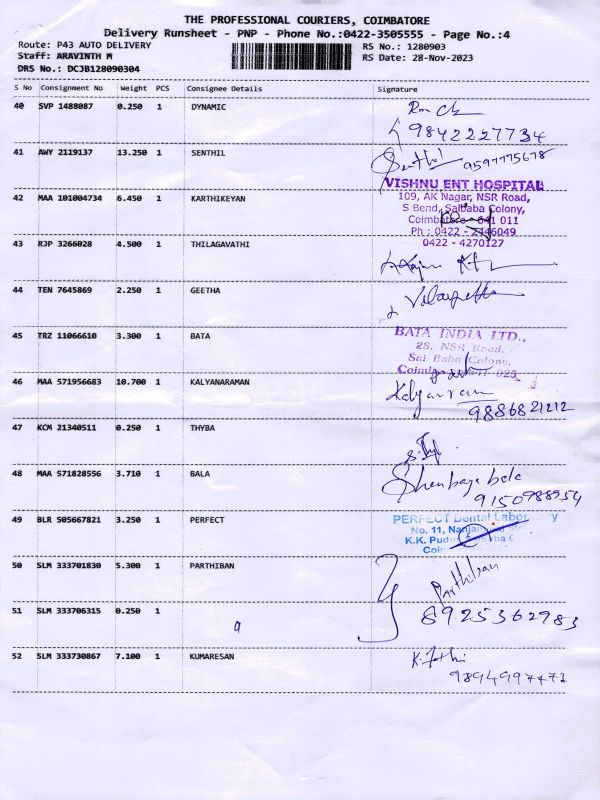 THE PROFESSIONAL COURIERS, COIMBATORE
Delivery Runsheet - PNP - Phone No.:0422-3505555 - Page No.:4
Route: P43 AUTO DELIVERY
RS No.: 1280903
Staff: ARAVINTH M
RS Date: 28-Nov-2023
DRS No.: DCJB128090304
S No Consignment No Weight PCS Consignee Details Signature
40 SVP 1488087 0.250 1 DYNAMIC
9842227734
41 AWY 2119137 13.250 1 SENTHIL Senthil 9597775678
VISHNU ENT HOSPITAL
42 MAA 101004734 6.450 1 KARTHIKEYAN 109, AK Nagar, NSR Road,
S Bend, Saibaba Colony,
Coimbatore - 641 011
Ph : 0422 - 2446049
43 RJP 3266028 4.500 1 THILAGAVATHI 0422 - 4270127
44 TEN 7645869 2.250 1 GEETHA
45 TRZ 11066610 3.300 1 BATA BATA INDIA LTD.,
28, NSR Road,
Sai Baba Colony,
025
46 MAA 571956683 10.700 1 KALYANARAMAN Kalyanram
9886821212
47 KCM 21340511 0.250 1 THYBA
48 MAA 571828556 3.710 1 BALA Shenbaga bala
9150988954
49 BLR 505667821 3.250 1 PERFECT PERFECT Dental Laboratory
No. 11,
K.K. Pudur
Coim
50 SLM 333701830 5.300 1 PARTHIBAN Parthiban
51 SLM 333706315 0.250 1 8925362983
9
52 SLM 333730867 7.100 1 KUMARESAN
9894997473